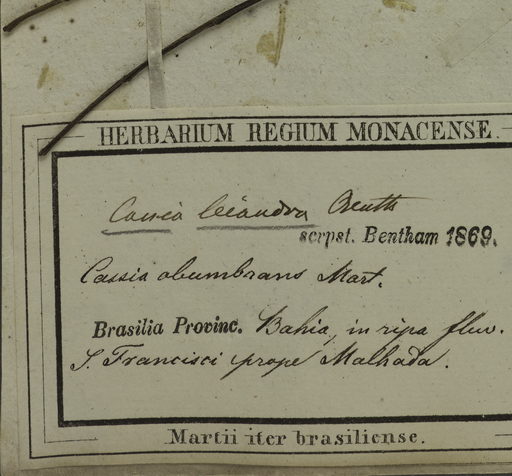 HERBARIUM REGIUM MONACENSE.
Cassia leiandra Benth
scrpst. Bentham 1869.
Cassia obumbrans Mart.
Brasilia Provinc. Bahia, in ripa fluv.
S. Francisci prope Malhada.
Martii iter brasiliense.